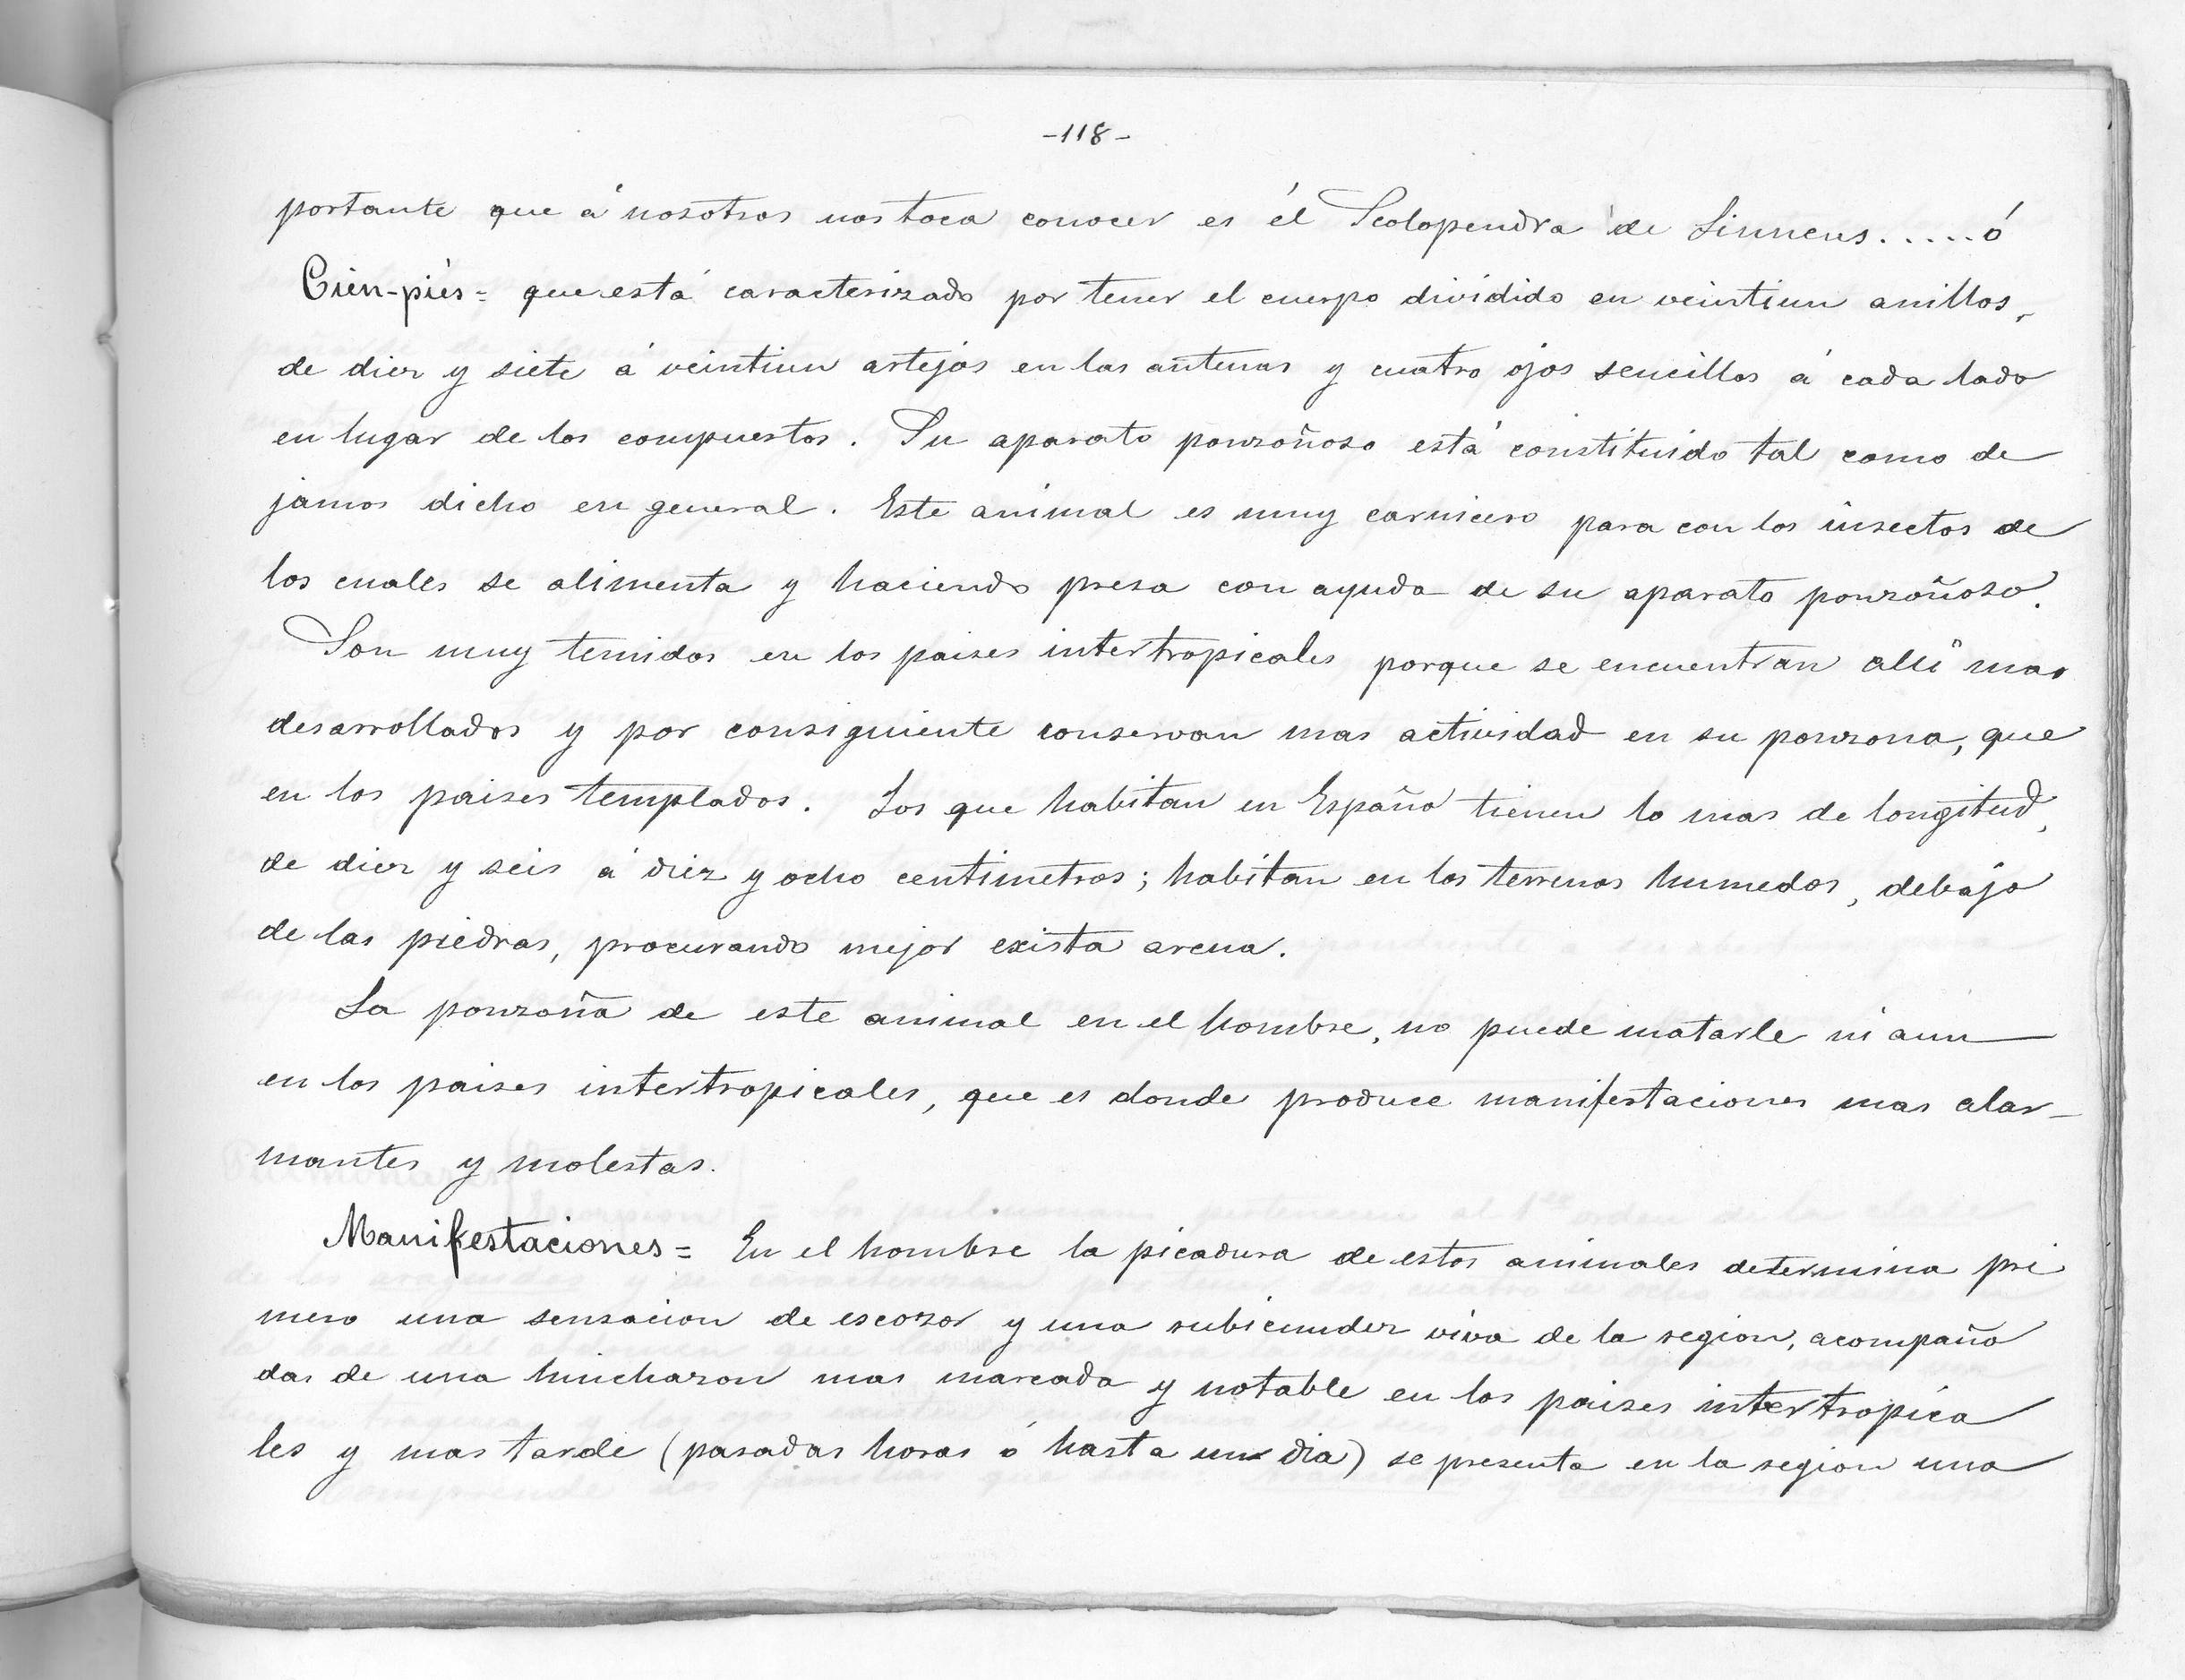 -118-
portante que á nosotros nos toca conocer es él Scolopendra de Linneus.....ó
Cien-piés= que está caracterizado por tener el cuerpo dividido en veintiun anillos,
de diez y siete á veintiun artejos en las antenas y cuatro ojos sencillos á cada lado
en lugar de los compuestos. Su aparato ponzoñoso está constituido tal como de
jamos dicho en general. Este animal es muy carnicero para con los insectos de
los cuales se alimenta y haciendo presa con ayuda de su aparato ponzoñoso.
Son muy temidos en los paises intertropicales porque se encuentran allí mas
desarrollados y por consiguiente conservan mas actividad en su ponzona, que
en los paises templados. Los que habitan en España tienen lo mas de longitud,
de diez y seis á diez y ocho centimetros; habitan en los terrenos humedos, debajo
de las piedras, procurando mejor exista arena.
La ponzoña de este animal en el hombre, no puede matarle ni aun
en los paises intertropicales, que es donde produce manifestaciones mas alar-
mantes y molestas.
Manifestaciones= En el hombre la picadura de estos animales determina pri
mero una sensacion de escozor y una rubicundez viva de la region, acompaña
das de una hinchazon mas marcada y notable en los paises intertropica
les y mas tarde (pasadas horas ó hasta un dia) se presenta en la region una